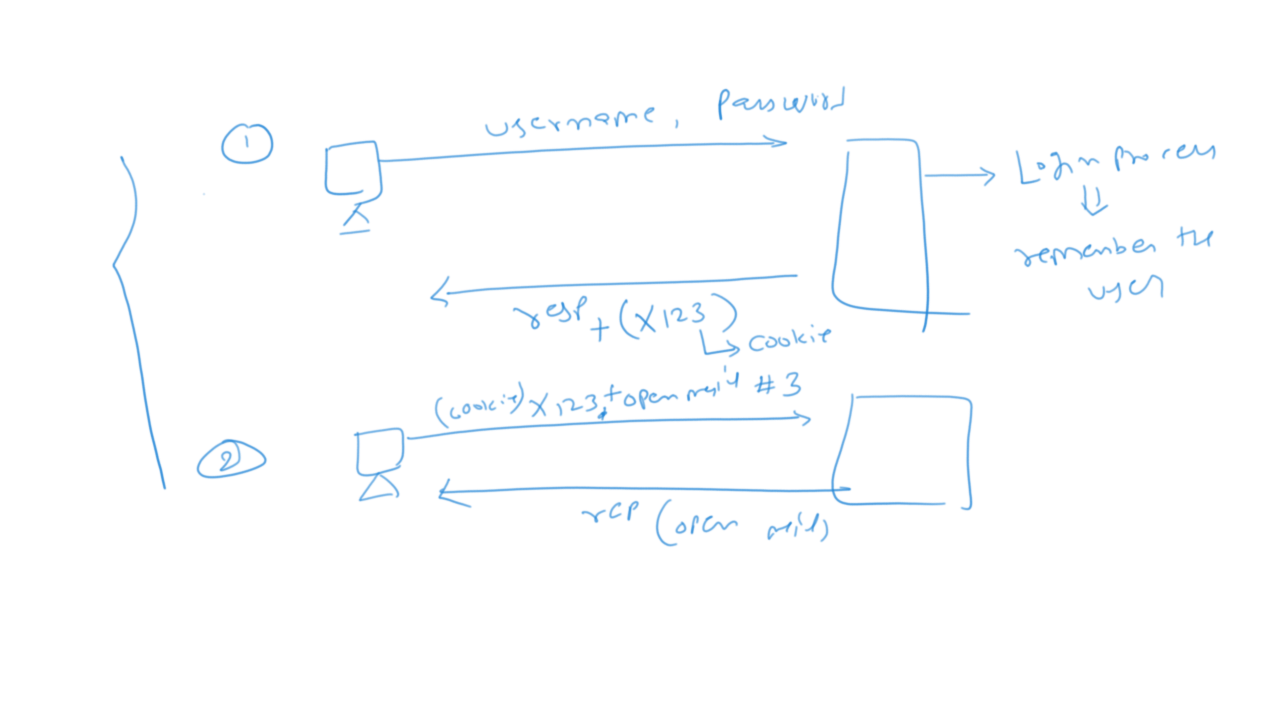 1
username, Password
Login process
⇓
remember the
user
resp + (X123)
cookie
(cookie) X123, + open mail #3
2
rep (open mail)